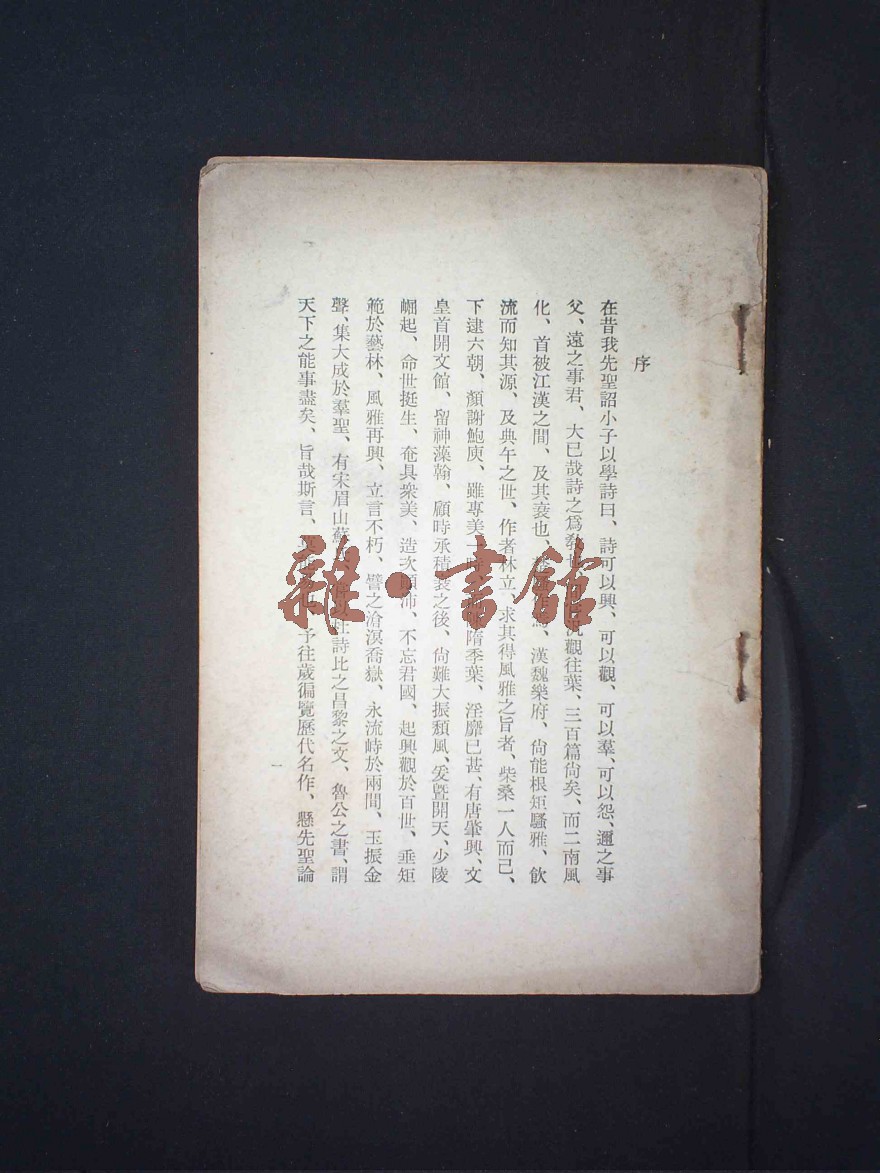 序
在昔我先聖詔小子以學詩曰、詩可以興、可以觀、可以羣、可以怨、邇之事
父、遠之事君、大已哉詩之爲教也、觀往葉、三百篇尙矣、而二南風
化、首被江漢之間、及其衰也、漢魏樂府、尙能根矩騷雅、飮
流而知其源、及典午之世、作者林立、求其得風雅之旨者、柴桑一人而已、
下逮六朝、顏謝鮑庾、雖專美一隋季葉、淫靡已甚、有唐肇興、文
皇首開文館、留神藻翰、顧時承積衰之後、尙難大振頹風、爰曁開天、少陵
崛起、命世挺生、奄具衆美、造次顚沛、不忘君國、起興觀於百世、垂矩
範於藝林、風雅再興、立言不朽、譬之滄溟喬嶽、永流峙於兩間、玉振金
聲、集大成於羣聖、有宋眉山蘇杜詩比之昌黎之文、魯公之書、謂
天下之能事盡矣、旨哉斯言、予往歲徧覽歷代名作、懸先聖論
一
雜·書館